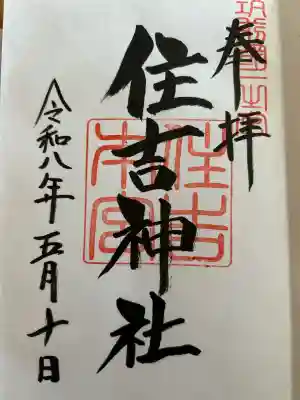 奉拝
筑前國一之宮
住吉神社
住吉本宮
令和八年五月十日